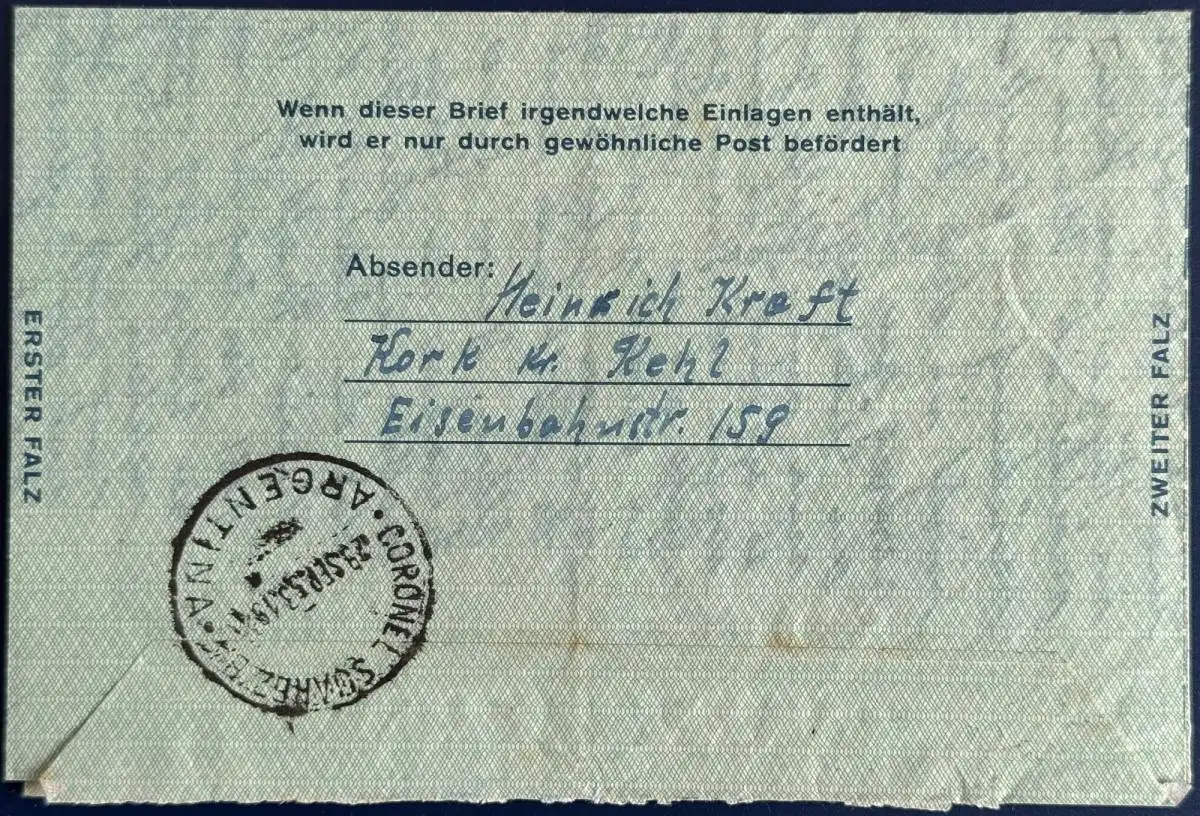 Wenn dieser Brief irgendwelche Einlagen enthält,
wird er nur durch gewöhnliche Post befördert
Absender: Heinrich Kraft
Kork Kr. Kehl
Eisenbahnstr. 159
ERSTER FALZ
ZWEITER FALZ
ARGENTINA
CORONEL SUAREZ
SEP.53.19